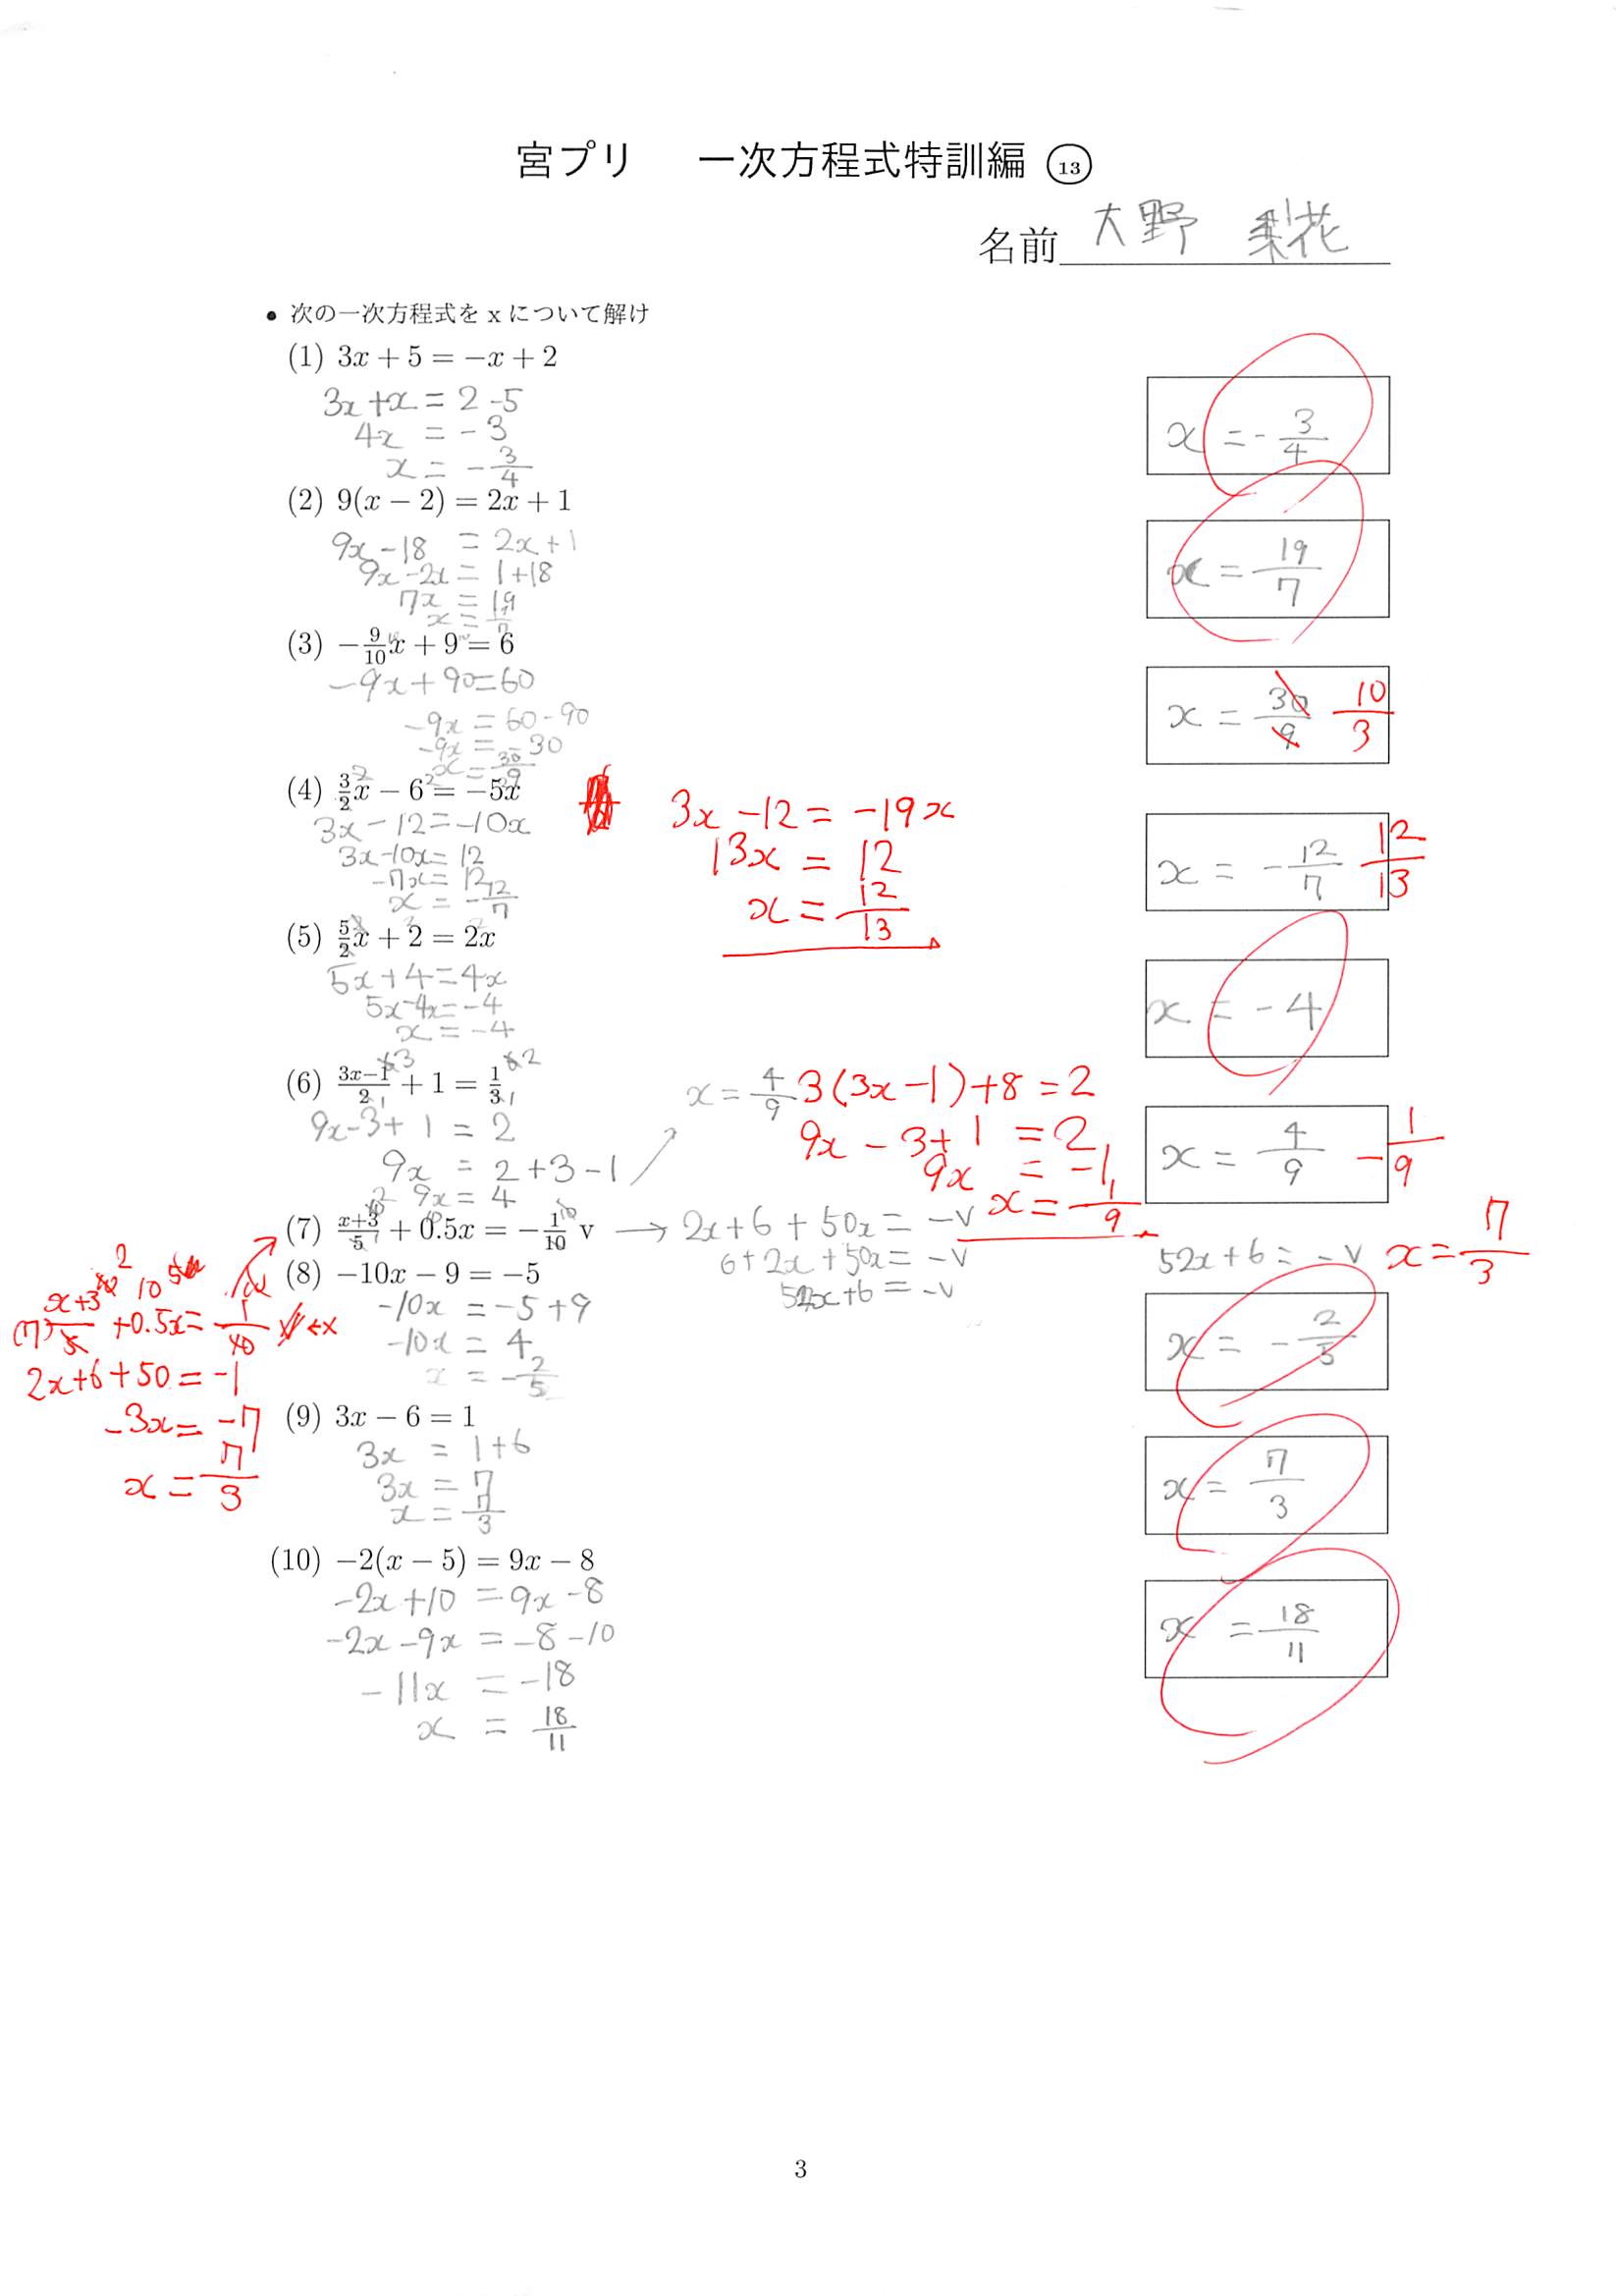 宮プリ 一次方程式特訓編 ⑬
名前 大野 梨花
• 次の一次方程式を x について解け
(1) 3x + 5 = −x + 2
3x + x = 2 - 5
4x = - 3
x = - 3/4
x = - 3/4
(2) 9(x − 2) = 2x + 1
9x - 18 = 2x + 1
9x - 2x = 1 + 18
7x = 19
x = 19/7
x = 19/7
(3) −9/10 x + 9 = 6
-9x + 90 = 60
-9x = 60 - 90
-9x = -30
x = 30/9
x = 30/9 10/3
(4) 3/2 x − 6 = −5x
3x - 12 = -10x
3x - 10x = 12
-7x = 12
x = - 12/7
3x - 12 = -19x
13x = 12
x = 12/13
x = - 12/7 12/13
(5) 5/2 x + 2 = 2x
5x + 4 = 4x
5x - 4x = -4
x = -4
x = - 4
(6) (3x−1)/2 + 1 = 1/3
9x - 3 + 1 = 2
9x = 2 + 3 - 1
9x = 4
x = 4/9
3(3x - 1) + 8 = 2
9x - 3 + 1 = 2
9x = -1
x = 1/9
x = 4/9 - 1/9
(7) (x+3)/5 + 0.5x = −1/10 v
→ 2x + 6 + 50x = -v
6 + 2x + 50x = -v
52x + 6 = -v
52x + 6 = - v x = 7/3
(7) (x+3)/5 + 0.5x = 1/10 ←x
2x + 6 + 50 = -1
-3x = -7
x = 7/3
(8) −10x − 9 = −5
-10x = -5 + 9
-10x = 4
x = - 2/5
x = - 2/5
(9) 3x − 6 = 1
3x = 1 + 6
3x = 7
x = 7/3
x = 7/3
(10) −2(x − 5) = 9x − 8
-2x + 10 = 9x - 8
-2x - 9x = -8 - 10
-11x = -18
x = 18/11
x = 18/11
3